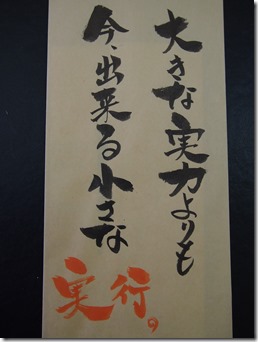 大きな実力よりも
今、出来る小さな
実行。